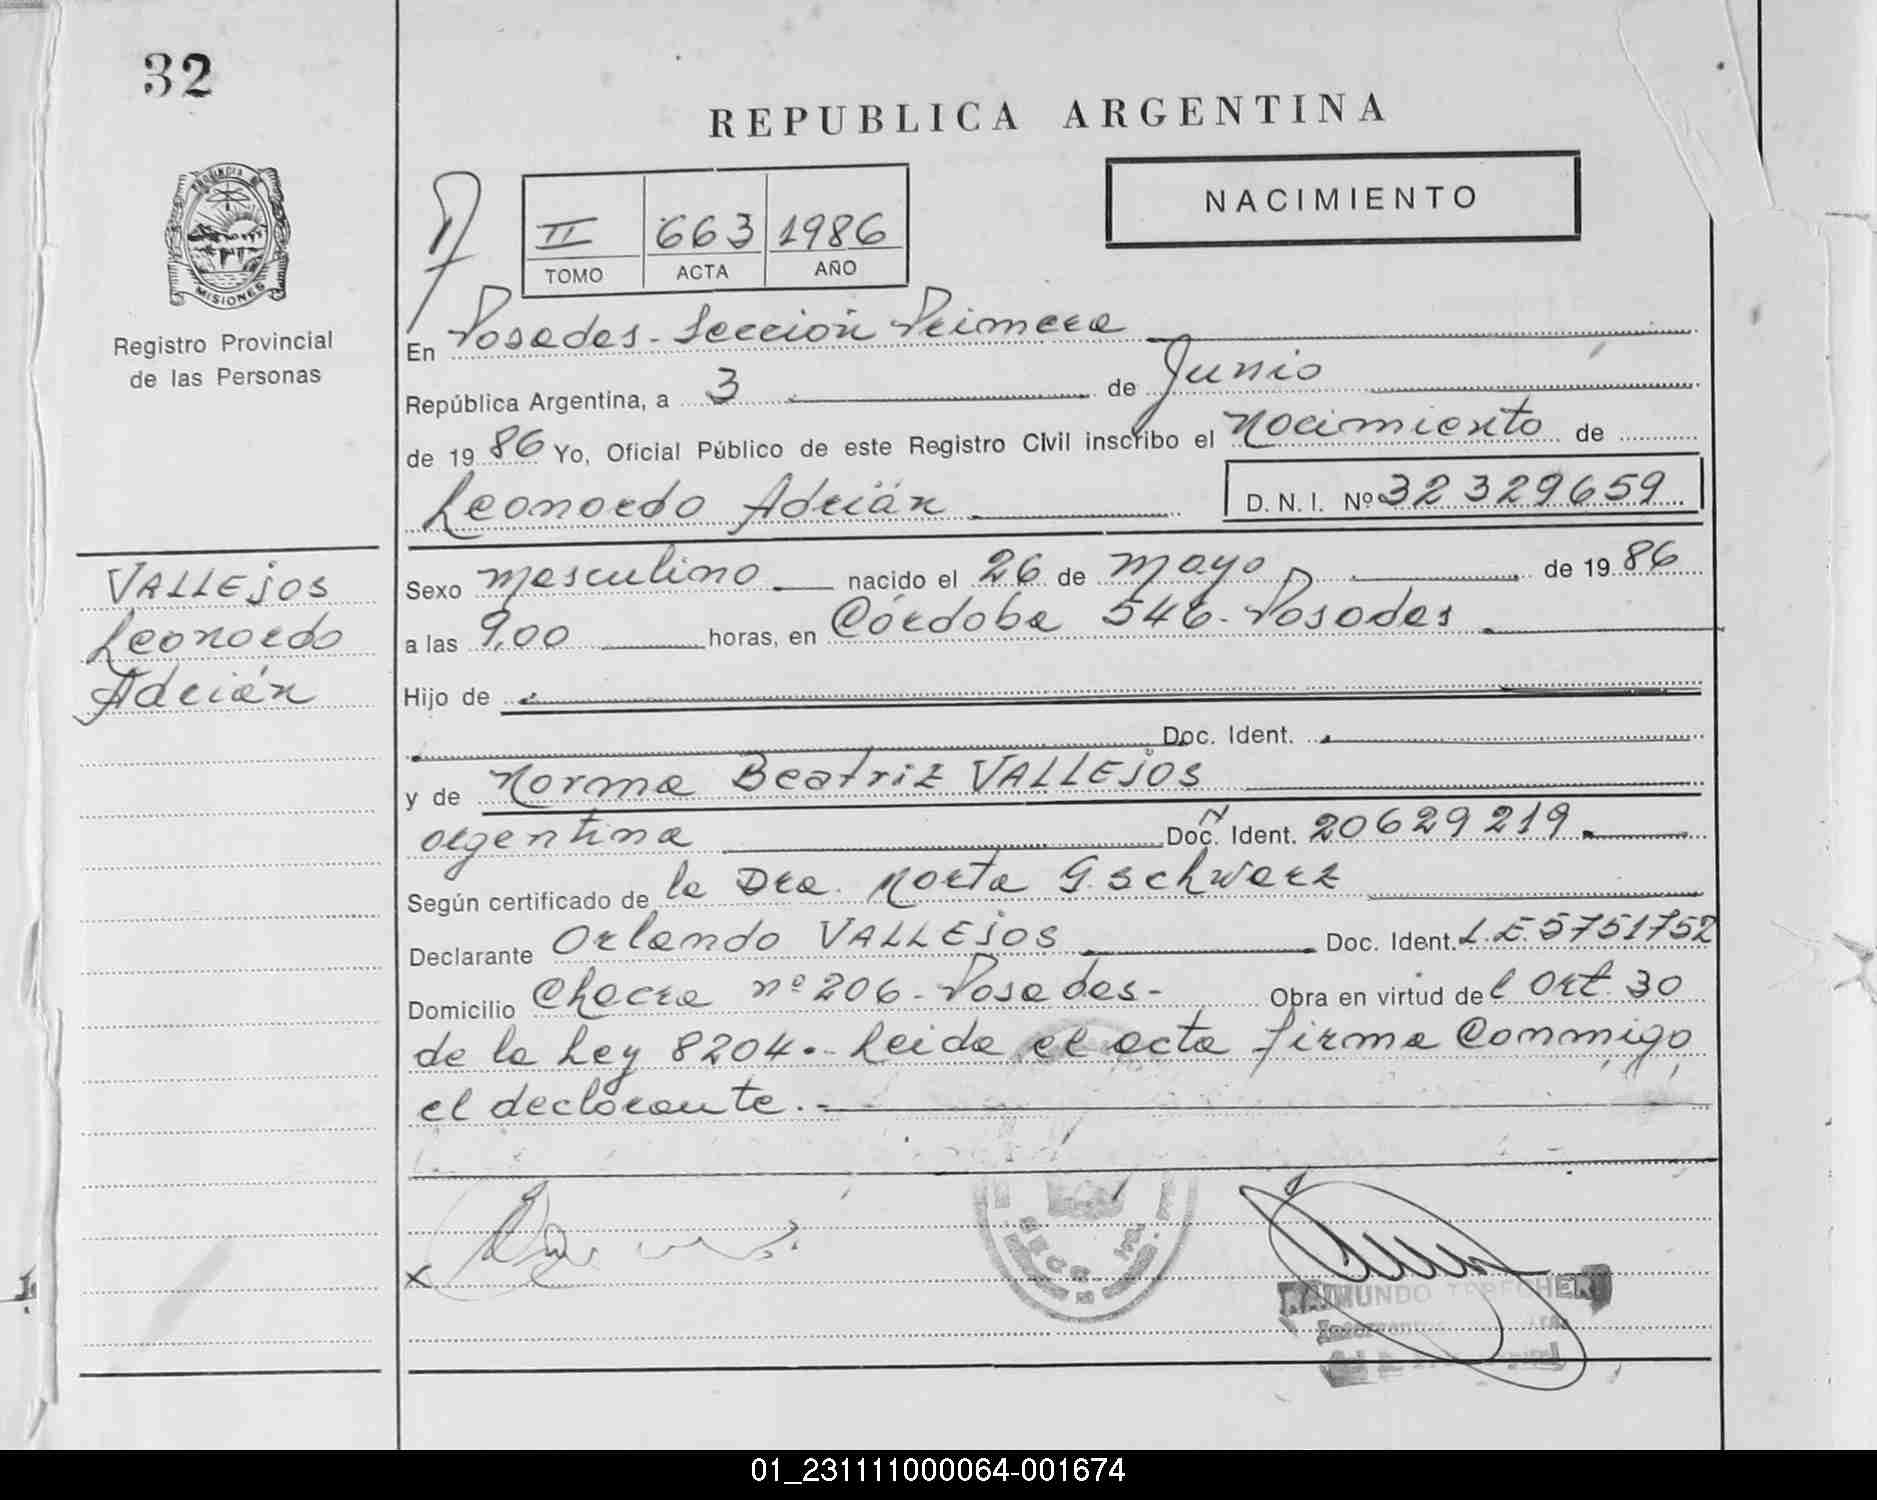 32
REPUBLICA ARGENTINA
NACIMIENTO
II 663 1986
TOMO ACTA AÑO
PROVINCIA DE
MISIONES
Registro Provincial
de las Personas
En Posadas - Sección Primera
República Argentina, a 3 de Junio
de 1986 Yo, Oficial Público de este Registro Civil inscribo el Nacimiento de
Leonardo Adrián D. N. I. Nº 32329659
VALLEJOS
Leonardo
Adrián
Sexo masculino nacido el 26 de mayo de 1986
a las 9,00 horas, en Córdoba 546 - Posadas
Hijo de
Doc. Ident.
y de Norma Beatriz VALLEJOS
argentina Doc. Ident. 20629219
Según certificado de la Dra. Marta G. Schwarz
Declarante Orlando VALLEJOS Doc. Ident. L.E. 5751752
Domicilio Chacra nº 206 - Posadas - Obra en virtud del Art 30
de la Ley 8204.- Leida el acta firma Conmigo
el declarante.-
x
RAIMUNDO
01_231111000064-001674